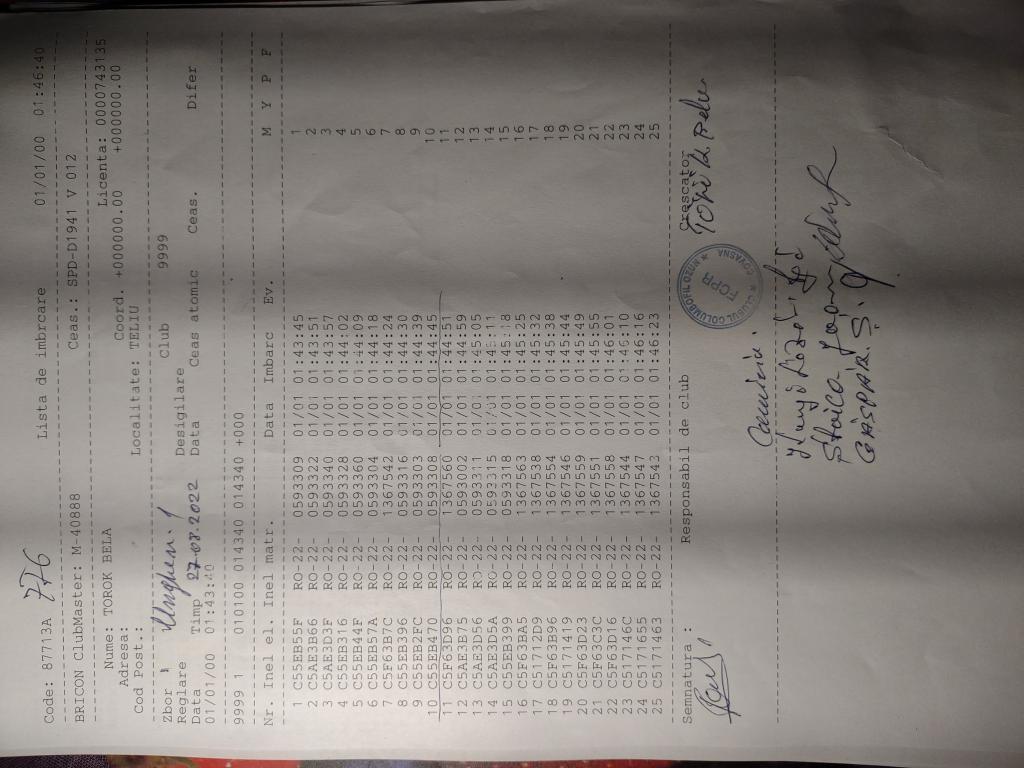 Code: 87713A 776 Lista de imbrcare 01/01/00 01:46:40
BRICON ClubMaster: M-40888 Ceas.: SPD-D1941 V 012
Nume: TOROK BELA Licenta: 0000743135
Adresa: Coord. +000000.00 +000000.00
Cod Post.: Localitate: TELIU
Zbor 1 Ungheni 1 Club 9999
Reglare Desigilare
Data Timp 27.08.2022 Data Ceas atomic Ceas. Difer
01/01/00 01:43:40
9999 1 010100 014340 014340 +000
Nr. Inel el. Inel matr. Data Imbarc Ev. M Y P F
1 C55EB55F RO-22- 0593309 01/01 01:43:45 1
2 C5AE3B66 RO-22- 0593322 01/01 01:43:51 2
3 C5AE3D3F RO-22- 0593340 01/01 01:43:57 3
4 C55EB316 RO-22- 0593328 01/01 01:44:02 4
5 C55EB44F RO-22- 0593360 01/01 01:44:09 5
6 C55EB57A RO-22- 0593304 01/01 01:44:18 6
7 C5F63B7C RO-22- 1367542 01/01 01:44:24 7
8 C55EB396 RO-22- 0593316 01/01 01:44:30 8
9 C55EB2FC RO-22- 0593303 01/01 01:44:39 9
10 C55EB470 RO-22- 0593308 01/01 01:44:45 10
11 C5F63B96 RO-22- 1367560 01/01 01:44:51 11
12 C5AE3B75 RO-22- 0593002 01/01 01:44:59 12
13 C5AE3B56 RO-22- 0593311 01/01 01:45:05 13
14 C5AE3D5A RO-22- 0593315 01/01 01:45:11 14
15 C55EB399 RO-22- 0593318 01/01 01:45:18 15
16 C5F63BA5 RO-22- 1367563 01/01 01:45:25 16
17 C51712D9 RO-22- 1367538 01/01 01:45:32 17
18 C5F63B96 RO-22- 1367554 01/01 01:45:38 18
19 C5171419 RO-22- 1367546 01/01 01:45:44 19
20 C5F63D23 RO-22- 1367559 01/01 01:45:49 20
21 C5F63C3C RO-22- 1367551 01/01 01:45:55 21
22 C5F63D16 RO-22- 1367558 01/01 01:46:01 22
23 C517146C RO-22- 1367544 01/01 01:46:10 23
24 C5171655 RO-22- 1367547 01/01 01:46:16 24
25 C5171463 RO-22- 1367543 01/01 01:46:23 25
Semnatura : Responsabil de club Crascator
CLUBUL COLUMBOFIL OZUN COVASNA
FCPR
Stoica Ioan
GÁSPÁR. S.